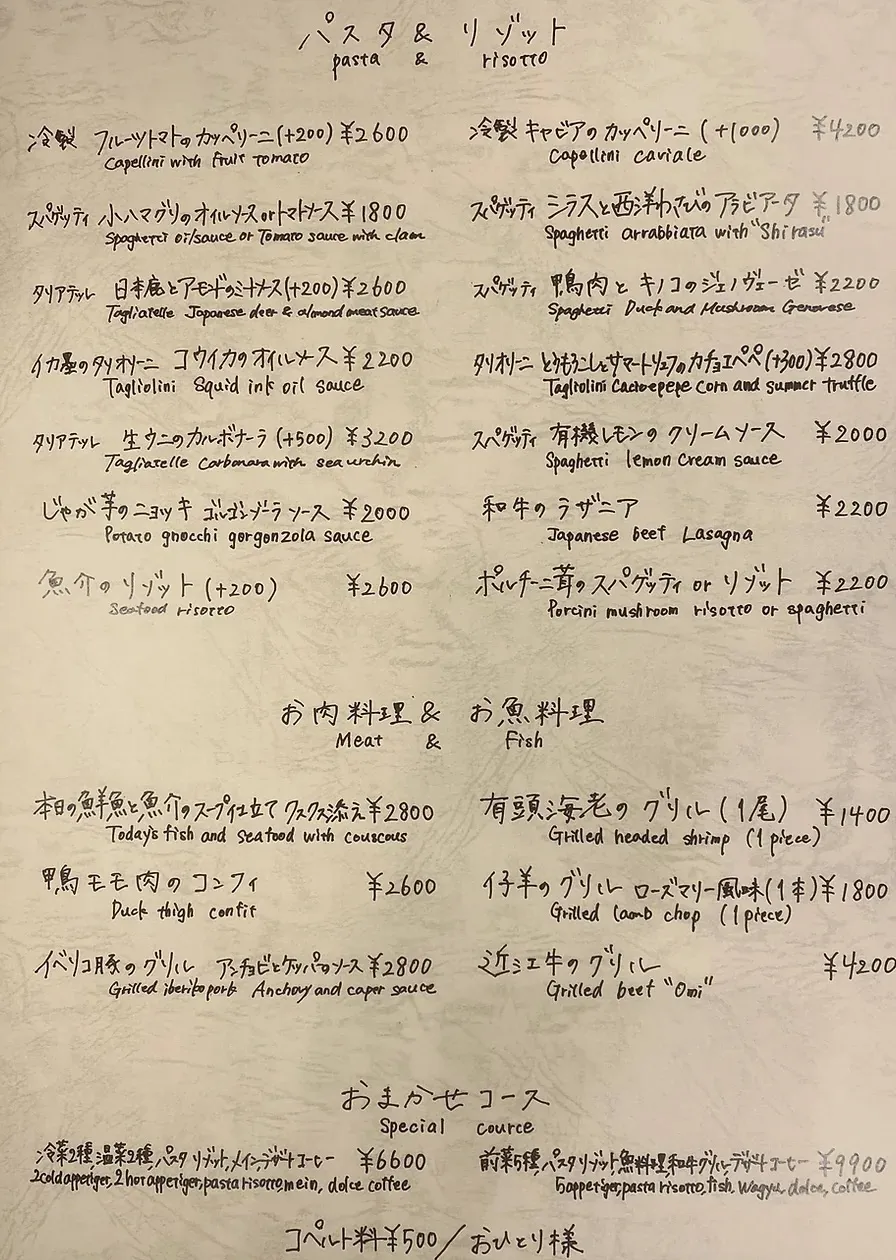 パスタ & リゾット
pasta & risotto
冷製 フルーツトマトのカッペリーニ(+200) ¥2600
Capellini with fruit tomato
スパゲッティ 小ハマグリのオイルソースorトマトソース ¥1800
Spaghetti oil sauce or Tomato sauce with clam
タリアテッレ 日本鹿とアーモンドのミートソース(+200) ¥2600
Tagliatelle Japanese deer & almond meat sauce
イカ墨のタリオリーニ コウイカのオイルソース ¥2200
Tagliolini Squid ink oil sauce
タリアテッレ 生ウニのカルボナーラ (+500) ¥3200
Tagliatelle Carbonara with sea urchin
じゃが芋のニョッキ ゴルゴンゾーラソース ¥2000
Potato gnocchi gorgonzola sauce
魚介のリゾット (+200) ¥2600
Seafood risotto
冷製 キャビアのカッペリーニ (+1000) ¥4200
Capellini caviale
スパゲッティ シラスと西洋わさびのアラビアータ ¥1800
Spaghetti arrabbiata with "Shirasu"
スパゲッティ 鴨肉とキノコのジェノヴェーゼ ¥2200
Spaghetti Duck and Mushroom Genovese
タリオリーニ とうもろこしとサマートリュフのカチョエペペ(+300) ¥2800
Tagliolini Cacioepepe corn and summer truffle
スパゲッティ 有機レモンのクリームソース ¥2000
Spaghetti lemon cream sauce
和牛のラザニア ¥2200
Japanese beef Lasagna
ポルチーニ茸のスパゲッティ or リゾット ¥2200
Porcini mushroom risotto or spaghetti
お肉料理 & お魚料理
Meat & Fish
本日の鮮魚と魚介のスープ仕立て クスクス添え ¥2800
Today's fish and seafood with couscous
鴨モモ肉のコンフィ ¥2600
Duck thigh confit
イベリコ豚のグリル アンチョビとケッパーのソース ¥2800
Grilled iberiko pork Anchovy and caper sauce
有頭海老のグリル (1尾) ¥1400
Grilled headed shrimp (1 piece)
仔羊のグリル ローズマリー風味(1本) ¥1800
Grilled lamb chop (1 piece)
近江牛のグリル ¥4200
Grilled beef "Omi"
おまかせコース
Special cource
冷菜2種,温菜2種,パスタ リゾット,メイン,デザート コーヒー ¥6600
2cold appetiger, 2hot appetiger, pasta risotto, mein, dolce coffee
前菜5種,パスタリゾット,魚料理,和牛グリル,デザート コーヒー ¥9900
5appetiger, pasta risotto, fish, Wagyu, dolce, coffee
コペルト料¥500/おひとり様